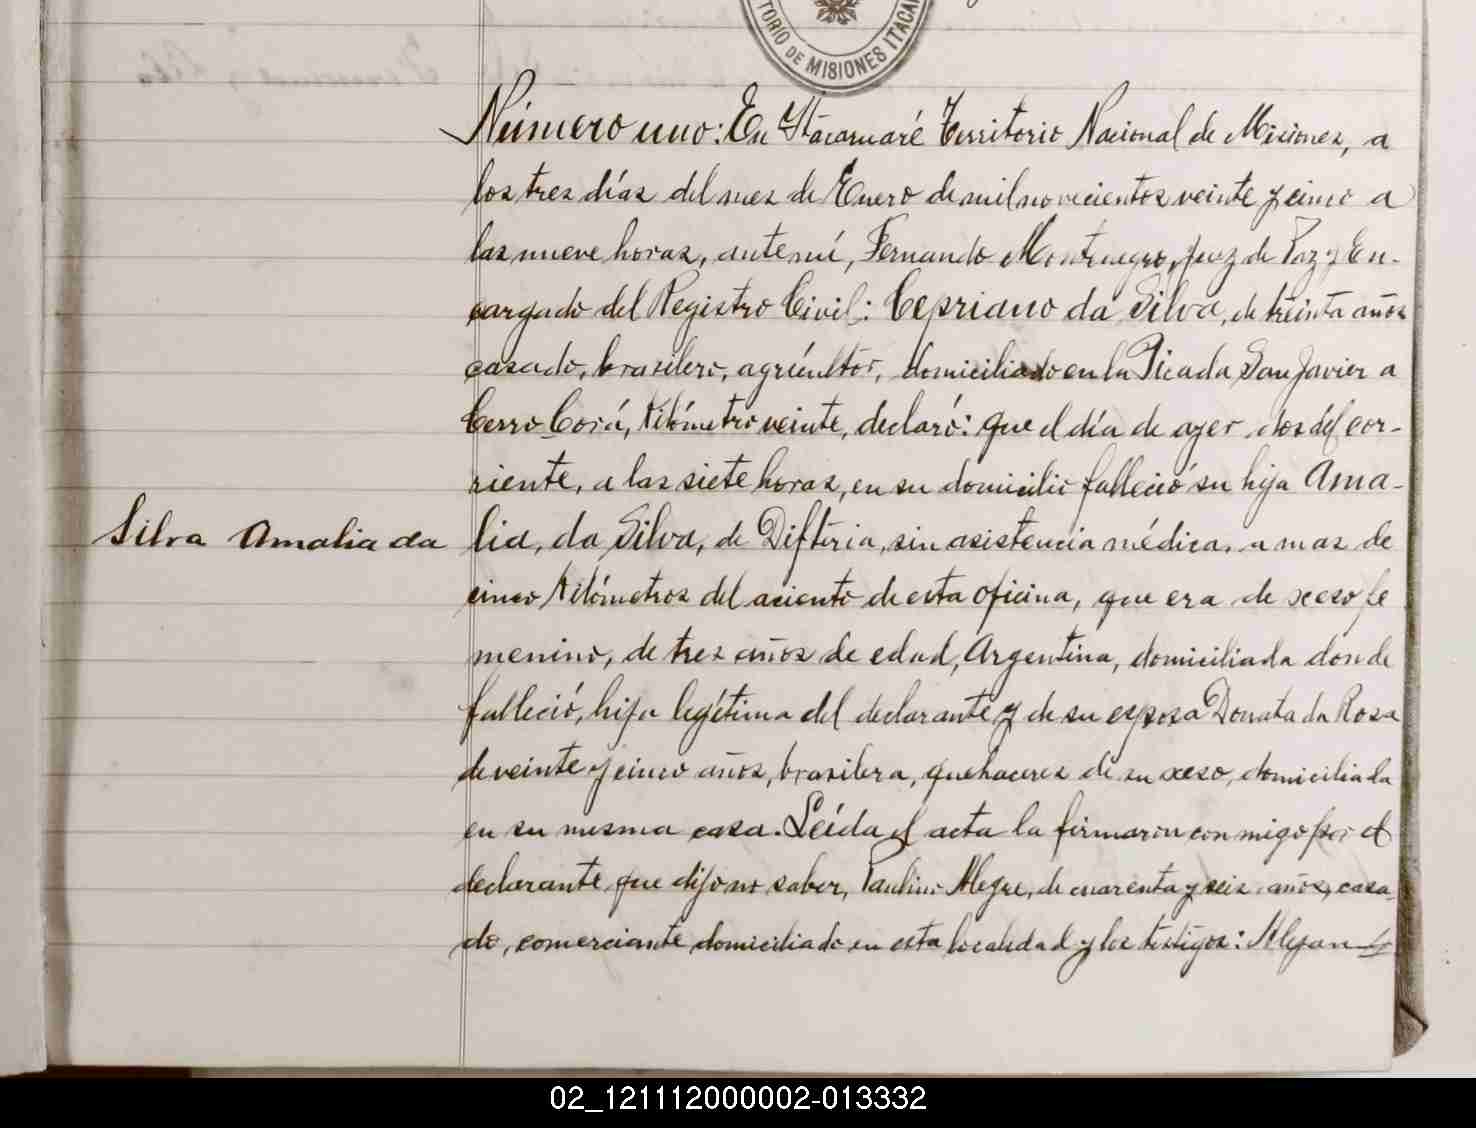 TORIO DE MISIONES ITACA
Número uno: En Ytacaruaré Territorio Nacional de Miciones, a
los tres días del mes de Enero de mil novecientos veinte y cinco a
las nueve horas, ante mí, Fernando Montenegro, Juez de Paz y En-
cargado del Registro Civil: Cepriano da Silva, de treinta años
casado, brasilero, agricultor, domiciliado en la Picada San Javier a
Cerro Corá, Kilómetro veinte, declaró: que el día de ayer dos del cor-
riente, a las siete horas, en su domicilio falleció su hija Ama-
Silva Amalia da
lia, da Silva, de Difteria, sin asistencia médica, a mas de
cinco Kilómetros del aciento de esta oficina, que era de xeso fe
menino, de tres años de edad, Argentina, domiciliada donde
falleció, hija legítima del declarante y de su esposa Donata da Rosa
de veinte y cinco años, brasilera, quehaceres de su xeso, domiciliada
en su misma casa. Leída el acta la firmaron conmigo por el
declarante que dijo no saber, Paulino Alegre, de cuarenta y seis años, casa
do, comerciante domiciliado en esta localidad y los testigos: Alejan
02_121112000002-013332